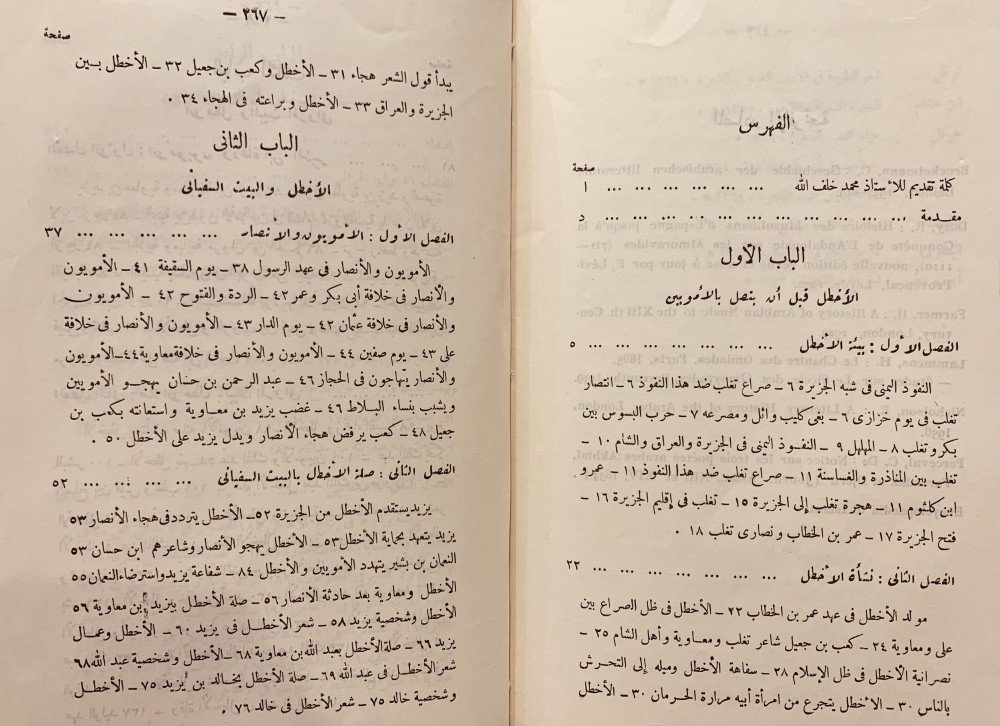 الفهرس
صفحة
كلمة تقديم للأستاذ محمد خلف الله ... ... ... ... ... ... ا
مقدمة ... ... ... ... ... ... ... ... ... ... ... د
الباب الأول
الأخطل قبل أن يتصل بالأمويين
الفصل الأول : بيئة الأخطل ... ... ... ... ... ... ... ٥
النفوذ اليمنى فى شبه الجزيرة ٦ – صراع تغلب ضد هذا النفوذ ٦ – انتصار
تغلب فى يوم خزازى ٦ – بغى كليب وائل ومصرعه ٧ – حرب البسوس بين
بكر وتغلب ٨ – المهلهل ٩ – النفوذ اليمنى فى الجزيرة والعراق والشام ١٠ –
تغلب بين المناذرة والغساسنة ١١ – صراع تغلب ضد هذا النفوذ ١١ – عمرو
ابن كلثوم ١١ – هجرة تغلب إلى الجزيرة ١٥ – تغلب فى إقليم الجزيرة ١٦ –
فتح الجزيرة ١٧ – عمر بن الخطاب ونصارى تغلب ١٨ .
الفصل الثانى : نشأة الأخطل ... ... ... ... ... ... ... ٢٢
مولد الأخطل فى عهد عمر بن الخطاب ٢٢ – الأخطل فى ظل الصراع بين
على ومعاوية ٢٤ – كعب بن جعيل شاعر تغلب ومعاوية وأهل الشام ٢٥ –
نصرانية الأخطل فى ظل الإسلام ٢٨ – سفاهة الأخطل وميله إلى التحرش
بالناس ٣٠ – الأخطل يتجرع من امرأة أبيه مرارة الحرمان ٣٠ – الأخطل
– ٢٦٧ –
صفحة
يبدأ قول الشعر هجاء ٣١ – الأخطل وكعب بن جعيل ٣٢ – الأخطل بين
الجزيرة والعراق ٣٣ – الأخطل وبراعته فى الهجاء ٣٤ .
الباب الثانى
الأخطل والبيت السفيانى
الفصل الأول : الأمويون والأنصار ... ... ... ... ... ... ٣٧
الأمويون والأنصار فى عهد الرسول ٣٨ – يوم السقيفة ٤١ – الأمويون
والأنصار فى خلافة أبى بكر وعمر ٤٢ – الردة والفتوح ٤٢ – الأمويون
والأنصار فى خلافة عثمان ٤٢ – يوم الدار ٤٣ – الأمويون والأنصار فى خلافة
على ٤٣ – يوم صفين ٤٤ – الأمويون والأنصار فى خلافة معاوية ٤٤ – الأمويون
والأنصار يتهاجون فى الحجاز ٤٦ – عبد الرحمن بن حسان يهجو الأمويين
ويشبب بنساء البلاط ٤٦ – غضب يزيد بن معاوية واستعانته بكعب بن
جعيل ٤٨ – كعب يرفض هجاء الأنصار ويدل يزيد على الأخطل ٥٠ .
الفصل الثانى : صلة الأخطل بالبيت السفيانى ... ... ... ... ... ٥٢
يزيد يستقدم الأخطل من الجزيرة ٥٢ – الأخطل يتردد فى هجاء الأنصار ٥٣
يزيد يتعهد بحماية الأخطل ٥٣ – الأخطل يهجو الأنصار وشاعرهم ابن حسان ٥٣
النعمان بن بشير يتهدد الأمويين والأخطل ٨٤ – شفاعة يزيد واسترضاء النعمان ٥٥
الأخطل ومعاوية بعد حادثة الأنصار ٥٦ – صلة الأخطل بيزيد ابن معاوية ٥٦
الأخطل وشخصية يزيد ٥٨ – شعر الأخطل فى يزيد ٦٠ – الأخطل وعمال
يزيد ٦٦ – صلة الأخطل بعبد الله بن معاوية ٦٨ – الأخطل وشخصية عبد الله ٦٨
شعر الأخطل فى عبد الله ٦٩ – صلة الأخطل بخالد بن يزيد ٧٥ – الأخطل
وشخصية خالد ٧٥ – شعر الأخطل فى خالد ٧٦ .